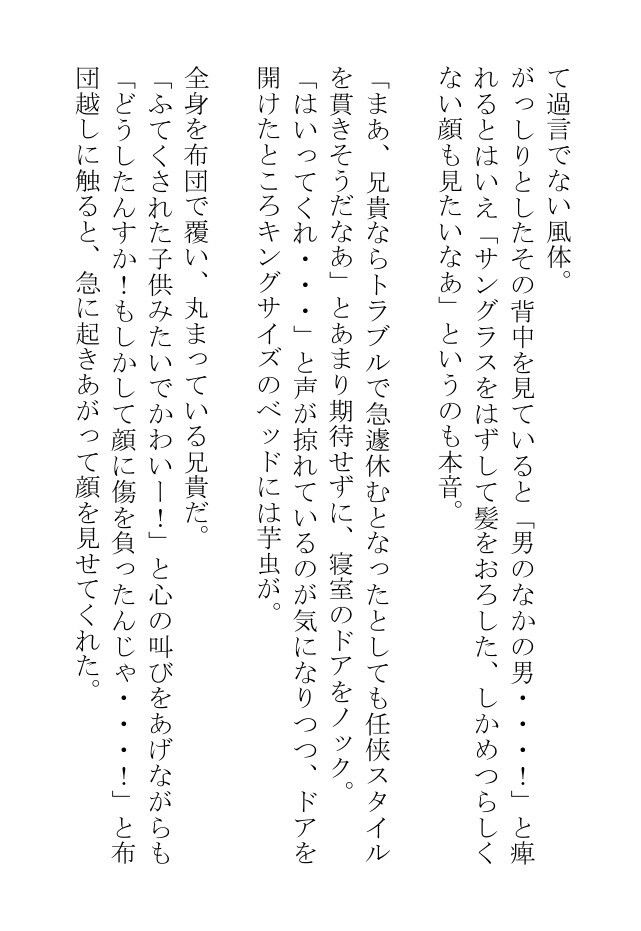 て過言でない風体。
がっしりとしたその背中を見ていると「男のなかの男・・・！」と痺
れるとはいえ「サングラスをはずして髪をおろした、しかめつらしく
ない顔も見たいなあ」というのも本音。
「まあ、兄貴ならトラブルで急遽休むとなったとしても任侠スタイル
を貫きそうだなあ」とあまり期待せずに、寝室のドアをノック。
「はいってくれ・・・」と声が掠れているのが気になりつつ、ドアを
開けたところキングサイズのベッドには芋虫が。
全身を布団で覆い、丸まっている兄貴だ。
「ふてくされた子供みたいでかわいー！」と心の叫びをあげながらも
「どうしたんすか！もしかして顔に傷を負ったんじゃ・・・！」と布
団越しに触ると、急に起きあがって顔を見せてくれた。